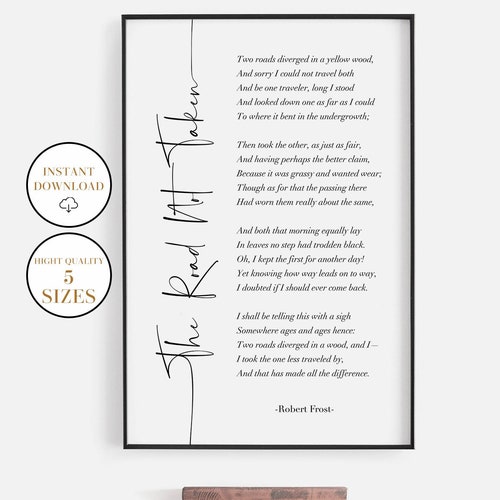 The Road Not Taken
Two roads diverged in a yellow wood,
And sorry I could not travel both
And be one traveler, long I stood
And looked down one as far as I could
To where it bent in the undergrowth;
Then took the other, as just as fair,
And having perhaps the better claim,
Because it was grassy and wanted wear;
Though as for that the passing there
Had worn them really about the same,
And both that morning equally lay
In leaves no step had trodden black.
Oh, I kept the first for another day!
Yet knowing how way leads on to way,
I doubted if I should ever come back.
I shall be telling this with a sigh
Somewhere ages and ages hence:
Two roads diverged in a wood, and I—
I took the one less traveled by,
And that has made all the difference.
-Robert Frost-
INSTANT
DOWNLOAD
HIGHT QUALITY
5
SIZES